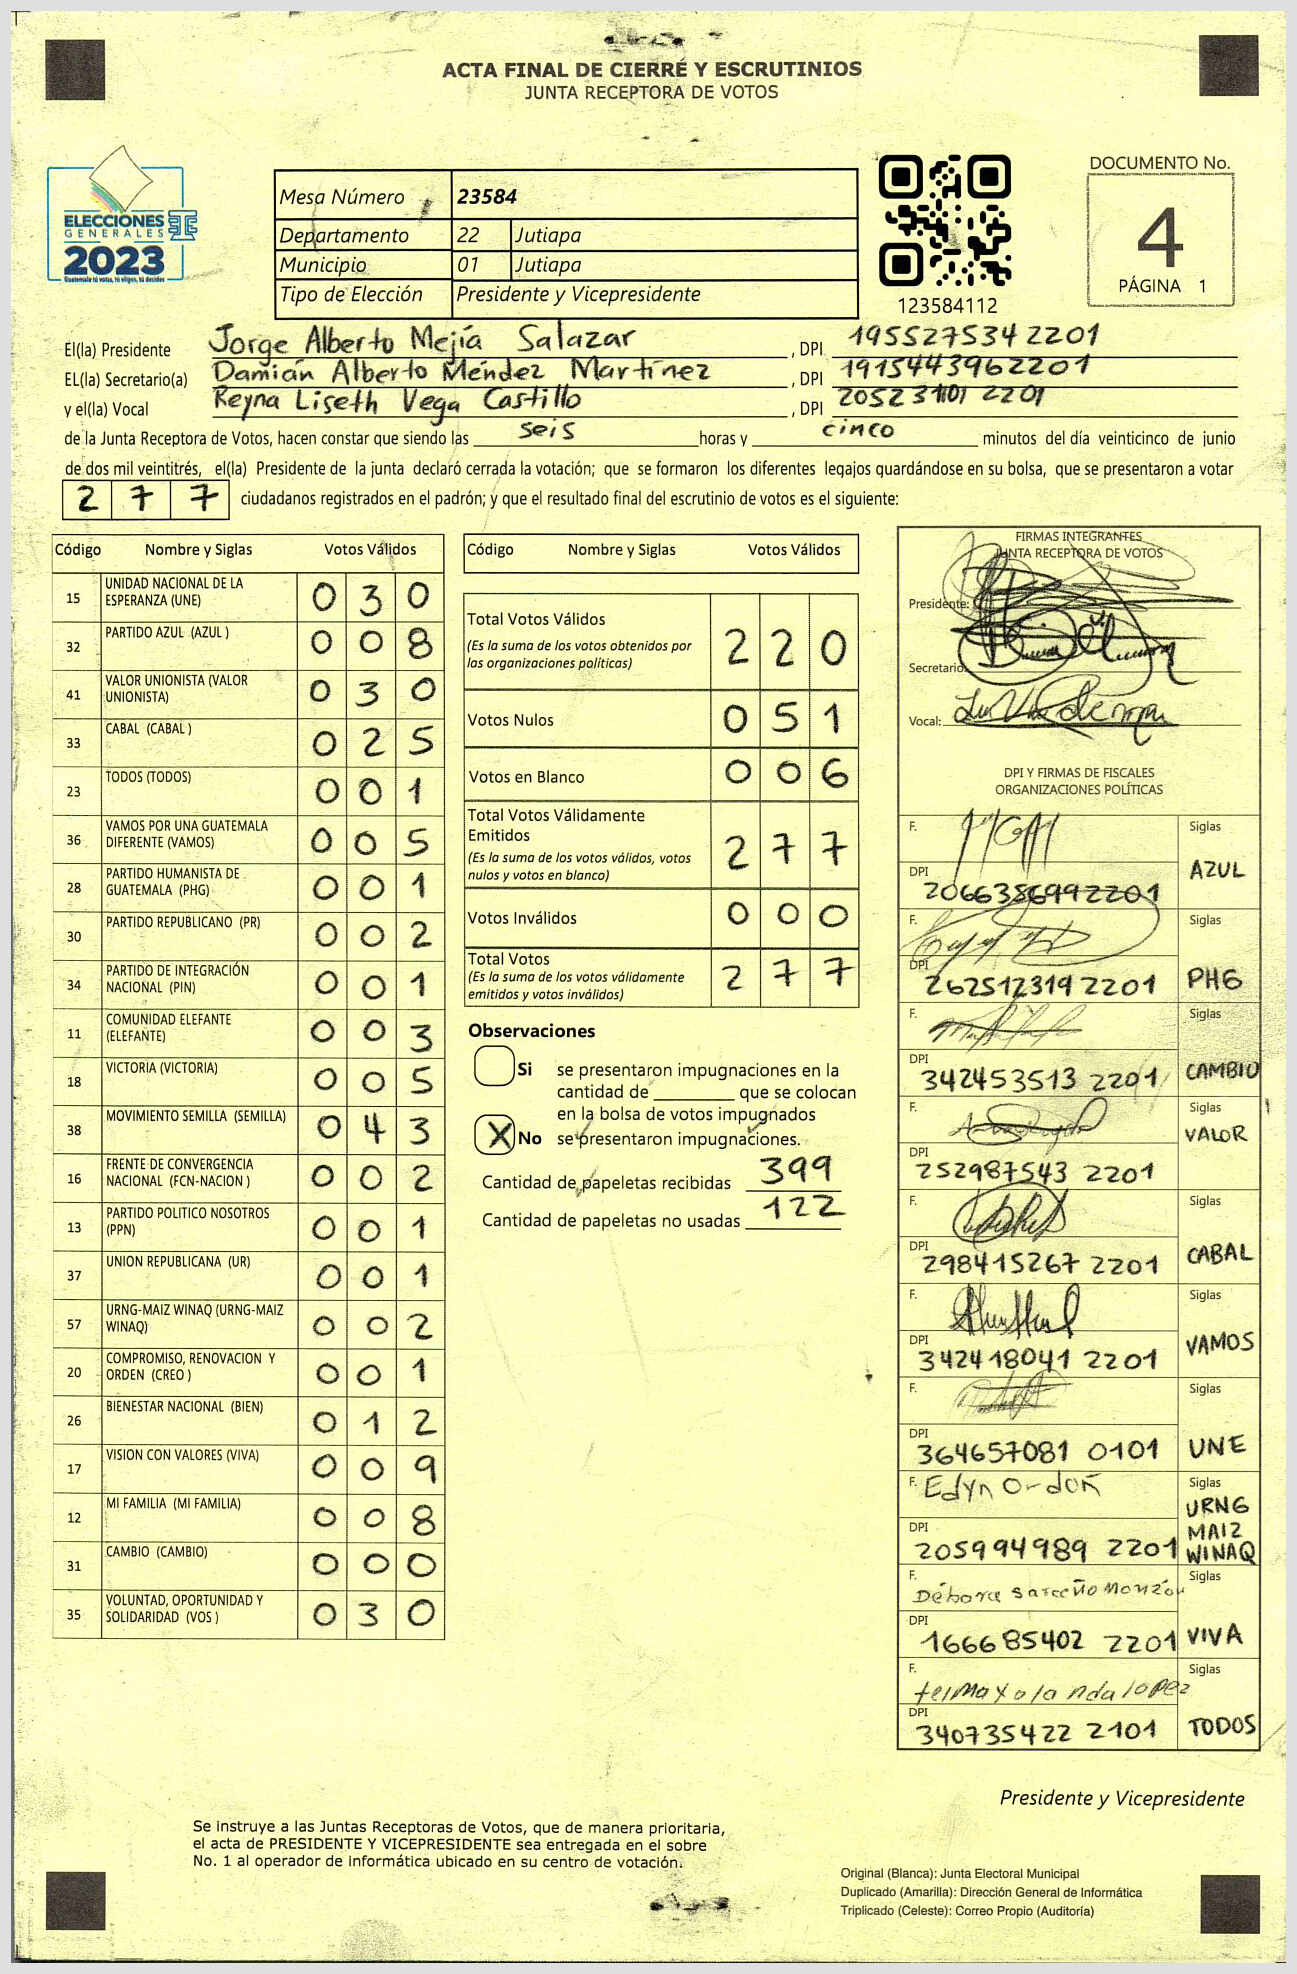 ACTA FINAL DE CIERRE Y ESCRUTINIOS
JUNTA RECEPTORA DE VOTOS
ELECCIONES
GENERALES
2023
Guatemala tú votas, tú eliges, tú decides
Mesa Número 23584
Departamento 22 Jutiapa
Municipio 01 Jutiapa
Tipo de Elección Presidente y Vicepresidente
123584112
DOCUMENTO No.
4
PÁGINA 1
El(la) Presidente Jorge Alberto Mejía Salazar, DPI 1955275342201
EL(la) Secretario(a) Damián Alberto Méndez Martínez, DPI 1915443962201
y el(la) Vocal Reyna Liseth Vega Castillo, DPI 205231101 2201
de la Junta Receptora de Votos, hacen constar que siendo las seis horas y cinco minutos del día veinticinco de junio
de dos mil veintitrés, el(la) Presidente de la junta declaró cerrada la votación; que se formaron los diferentes legajos guardándose en su bolsa, que se presentaron a votar
277 ciudadanos registrados en el padrón; y que el resultado final del escrutinio de votos es el siguiente:
Código Nombre y Siglas Votos Válidos
15 UNIDAD NACIONAL DE LA ESPERANZA (UNE) 030
32 PARTIDO AZUL (AZUL ) 008
41 VALOR UNIONISTA (VALOR UNIONISTA) 030
33 CABAL (CABAL ) 025
23 TODOS (TODOS) 001
36 VAMOS POR UNA GUATEMALA DIFERENTE (VAMOS) 005
28 PARTIDO HUMANISTA DE GUATEMALA (PHG) 001
30 PARTIDO REPUBLICANO (PR) 002
34 PARTIDO DE INTEGRACIÓN NACIONAL (PIN) 001
11 COMUNIDAD ELEFANTE (ELEFANTE) 003
18 VICTORIA (VICTORIA) 005
38 MOVIMIENTO SEMILLA (SEMILLA) 043
16 FRENTE DE CONVERGENCIA NACIONAL (FCN-NACION ) 002
13 PARTIDO POLITICO NOSOTROS (PPN) 001
37 UNION REPUBLICANA (UR) 001
57 URNG-MAIZ WINAQ (URNG-MAIZ WINAQ) 002
20 COMPROMISO, RENOVACION Y ORDEN (CREO ) 001
26 BIENESTAR NACIONAL (BIEN) 012
17 VISION CON VALORES (VIVA) 009
12 MI FAMILIA (MI FAMILIA) 008
31 CAMBIO (CAMBIO) 000
35 VOLUNTAD, OPORTUNIDAD Y SOLIDARIDAD (VOS ) 030
Código Nombre y Siglas Votos Válidos
Total Votos Válidos 220
(Es la suma de los votos obtenidos por
las organizaciones políticas)
Votos Nulos 051
Votos en Blanco 006
Total Votos Válidamente
Emitidos 277
(Es la suma de los votos válidos, votos
nulos y votos en blanco)
Votos Inválidos 000
Total Votos 277
(Es la suma de los votos válidamente
emitidos y votos inválidos)
Observaciones
Si se presentaron impugnaciones en la
cantidad de ________ que se colocan
en la bolsa de votos impugnados
X No se presentaron impugnaciones.
Cantidad de papeletas recibidas 399
Cantidad de papeletas no usadas 122
FIRMAS INTEGRANTES
JUNTA RECEPTORA DE VOTOS
Presidente:
Secretario:
Vocal:
DPI Y FIRMAS DE FISCALES
ORGANIZACIONES POLÍTICAS
F. Siglas
DPI 2066386992201 AZUL
F. Siglas
DPI 2625123192201 PHG
F. Siglas
DPI 342453513 2201 CAMBIO
F. Siglas
DPI 252987543 2201 VALOR
F. Siglas
DPI 298415267 2201 CABAL
F. Siglas
DPI 342418041 2201 VAMOS
F. Siglas
DPI 364657081 0101 UNE
F. Edyn Ordoñ Siglas
DPI 205994989 2201 URNG MAIZ WINAQ
F. Débora Sarceño Monzón Siglas
DPI 166685402 2201 VIVA
F. telma yolanda lopez Siglas
DPI 340735422 2101 TODOS
Presidente y Vicepresidente
Se instruye a las Juntas Receptoras de Votos, que de manera prioritaria,
el acta de PRESIDENTE Y VICEPRESIDENTE sea entregada en el sobre
No. 1 al operador de informática ubicado en su centro de votación.
Original (Blanca): Junta Electoral Municipal
Duplicado (Amarilla): Dirección General de Informática
Triplicado (Celeste): Correo Propio (Auditoría)